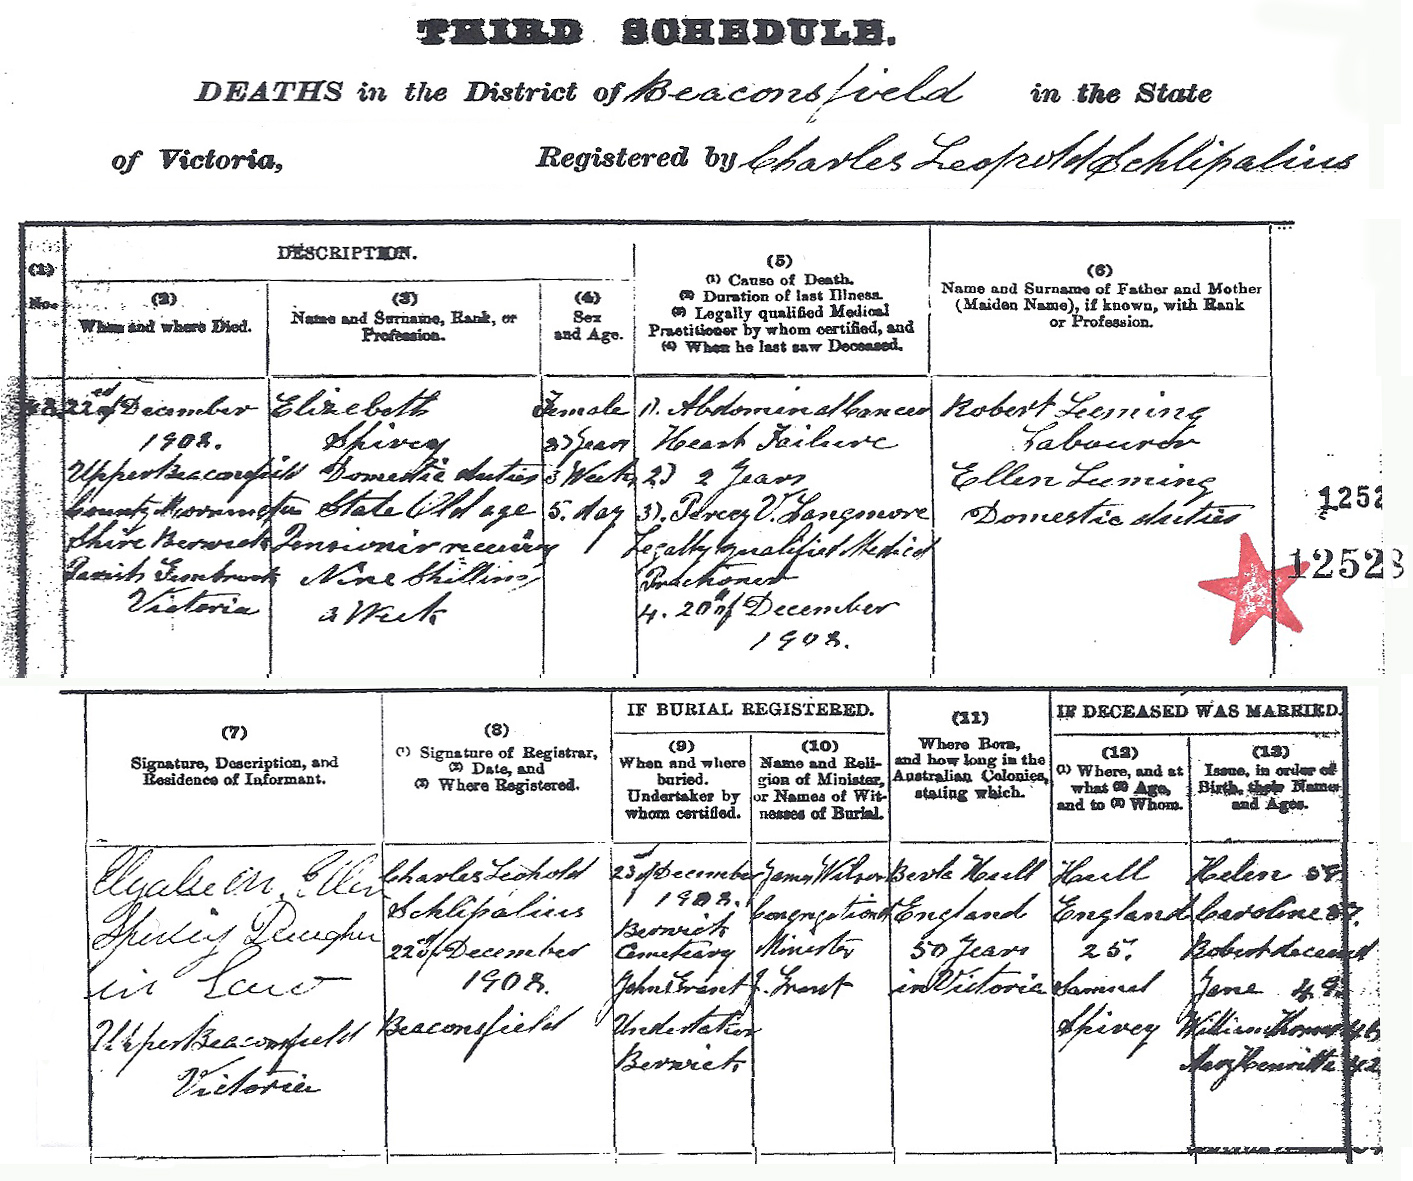 THIRD SCHEDULE.
DEATHS in the District of Beaconsfield in the State
of Victoria, Registered by Charles Leopold Schlipalius
DESCRIPTION.
(1)
No.
(2)
When and where Died.
(3)
Name and Surname, Rank, or
Profession.
(4)
Sex
and Age.
(5)
(1) Cause of Death.
(2) Duration of last Illness.
(3) Legally qualified Medical
Practitioner by whom certified, and
(4) When he last saw Deceased.
(6)
Name and Surname of Father and Mother
(Maiden Name), if known, with Rank
or Profession.
22nd of December
1908.
Upper Beaconsfield
County Mornington
Shire Berwick
Parish
Victoria
Elizabeth
Spivey
Domestic duties
State Old age
Pensioner receiving
Nine Shillins
a Week
Female
Years
3 Weeks
5. day
1). Abdominal Cancer
Heart Failure
2) 2 Years
3). Percy V. Langmore
Legally qualified Medical
4. 20th of December
1908.
Robert Leeming
Labourer
Ellen Leeming
Domestic duties
1252
12528
(7)
Signature, Description, and
Residence of Informant.
(8)
(1) Signature of Registrar,
(2) Date, and
(3) Where Registered.
IF BURIAL REGISTERED.
(9)
When and where
buried.
Undertaker by
whom certified.
(10)
Name and Reli-
gion of Minister,
or Names of Wit-
nesses of Burial.
(11)
Where Born,
and how long in the
Australian Colonies,
stating which.
IF DECEASED WAS MARRIED.
(12)
(1) Where, and at
what (2) Age,
and to (3) Whom.
(13)
Issue, in order of
Birth, their Names
and Ages.
Ellen
Daughter
in Law
Upper Beaconsfield
Victoria
Charles Leopold
Schlipalius
22nd of December
1908.
Beaconsfield
23rd of December
1908.
Berwick
Cemetery
John Grant
Undertaker
Berwick
James Wilson
Minister
J. Grant
Hull
England
50 Years
in Victoria
Hull
England
25.
Samuel
Spivey
Helen 59
Caroline 57.
Robert deceased
Jane 49.
William Thomas 46
Mary Henritta 42